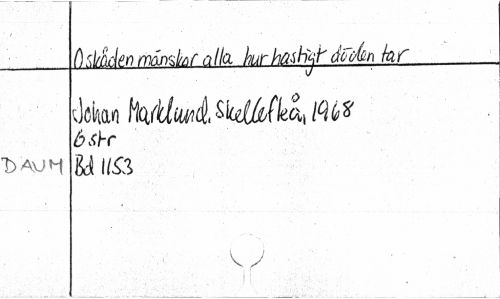 Oskåden mänskor alla hur hastigt döden tar
Johan Marklund, Skellefteå, 1968
6 str
DAUM Bd 1153